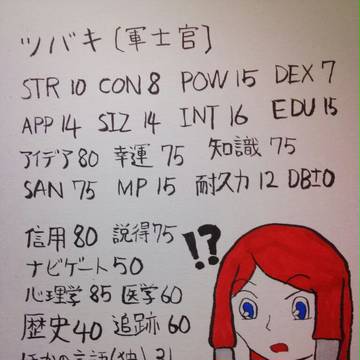 ツバキ〔軍士官〕
STR 10 CON 8 POW 15 DEX 7
APP 14 SIZ 14 INT 16 EDU 15
アイデア 80 幸運 75 知識 75
SAN 75 MP 15 耐久力 12 DB±0
信用 80 説得 75
!?
ナビゲート 50
心理学 85 医学 60
歴史 40 追跡 60
ほかの言語(独) 31